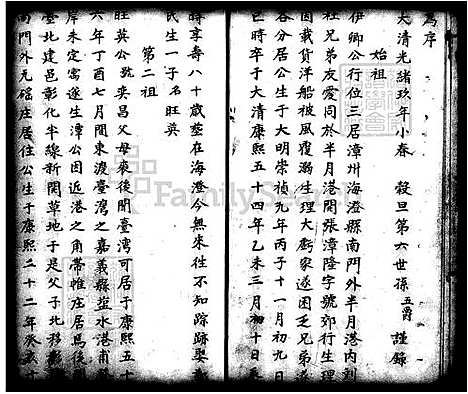 為序
大清光緒玖年小春 穀旦第六世孫五爵 謹錄
始祖
伊卿公行位三居漳州海澄縣南門外半月港內列
社兄弟友愛同於半月港開張漳隆字號郊行生理
因載貨洋船被風覆溺生理大虧家遂困乏兄弟遂
各分居公生于大明崇禎九年丙子十一月初九日
巳時卒于大清康熙五十四年乙未三月初十日
時享壽八十歲塟在海澄今無來往不知踪跡娶
氏生一子名旺英
第二祖
旺英公號英昌父母喪後聞臺灣可居于康熙五十
六年丁酉七月間東渡臺灣之嘉義縣鹽水港甫
岸未定寓遂生潭公因近港之角帶帷庄居焉後
臺北建邑彰化半線新開草地于是父子北移彰
南門外瓦磘庄居住公生于康熙二十二年癸亥十
FamilySearch